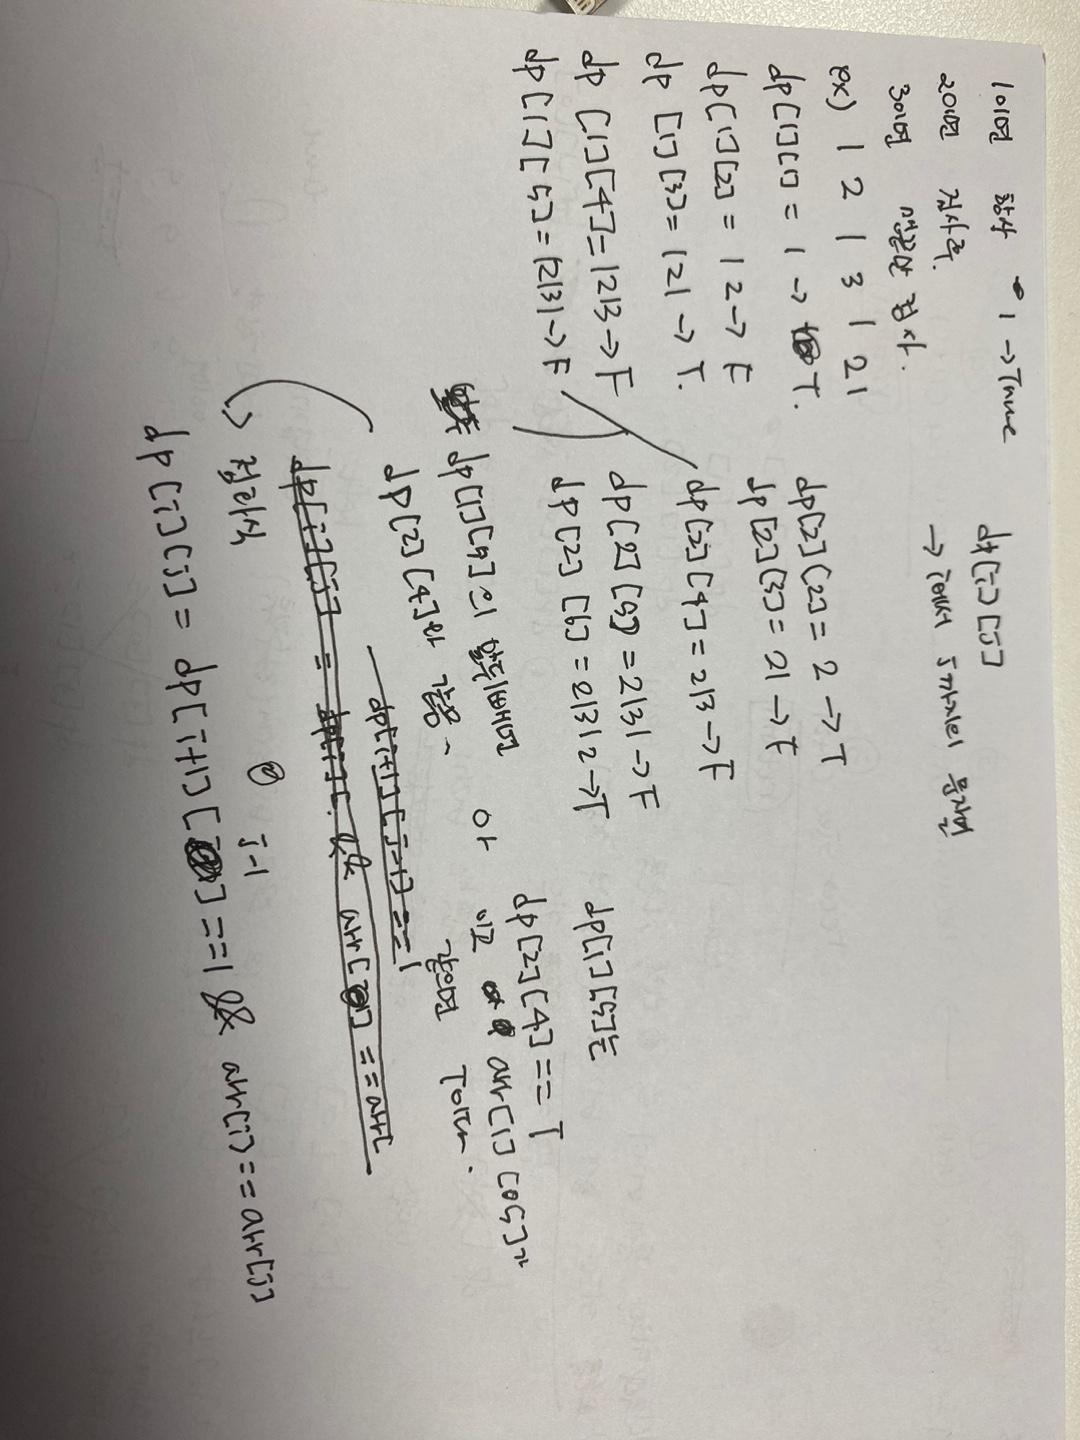 1이면 항상 1 → True
2이면 검사후.
3이면 맨끝만 검사.
ex) 1 2 1 3 1 2 1
dp[1][1] = 1 → T.
dp[1][2] = 12 → F
dp[1][3] = 121 → T.
dp[1][4] = 1213 → F
dp[1][5] = 12131 → F
dp[i][j]
→ i에서 j까지의 문자면
dp[2][2] = 2 → T
dp[2][3] = 21 → F
dp[2][4] = 213 → F
dp[2][5] = 2131 → F
dp[2][6] = 21312 → T
dp[1][5]의 앞뒤빼면
dp[2][4]와 같음.
dp[1][5]는
dp[2][4] == T
이고 arr[1] [5]가
같으면 T이다.
dp[i+1][j-1] == 1
dp[i][j] = && arr[ ] == arr[
→ 점화식
j-1
dp[i][j] = dp[i+1][ ] == 1 && arr[i] == arr[j]